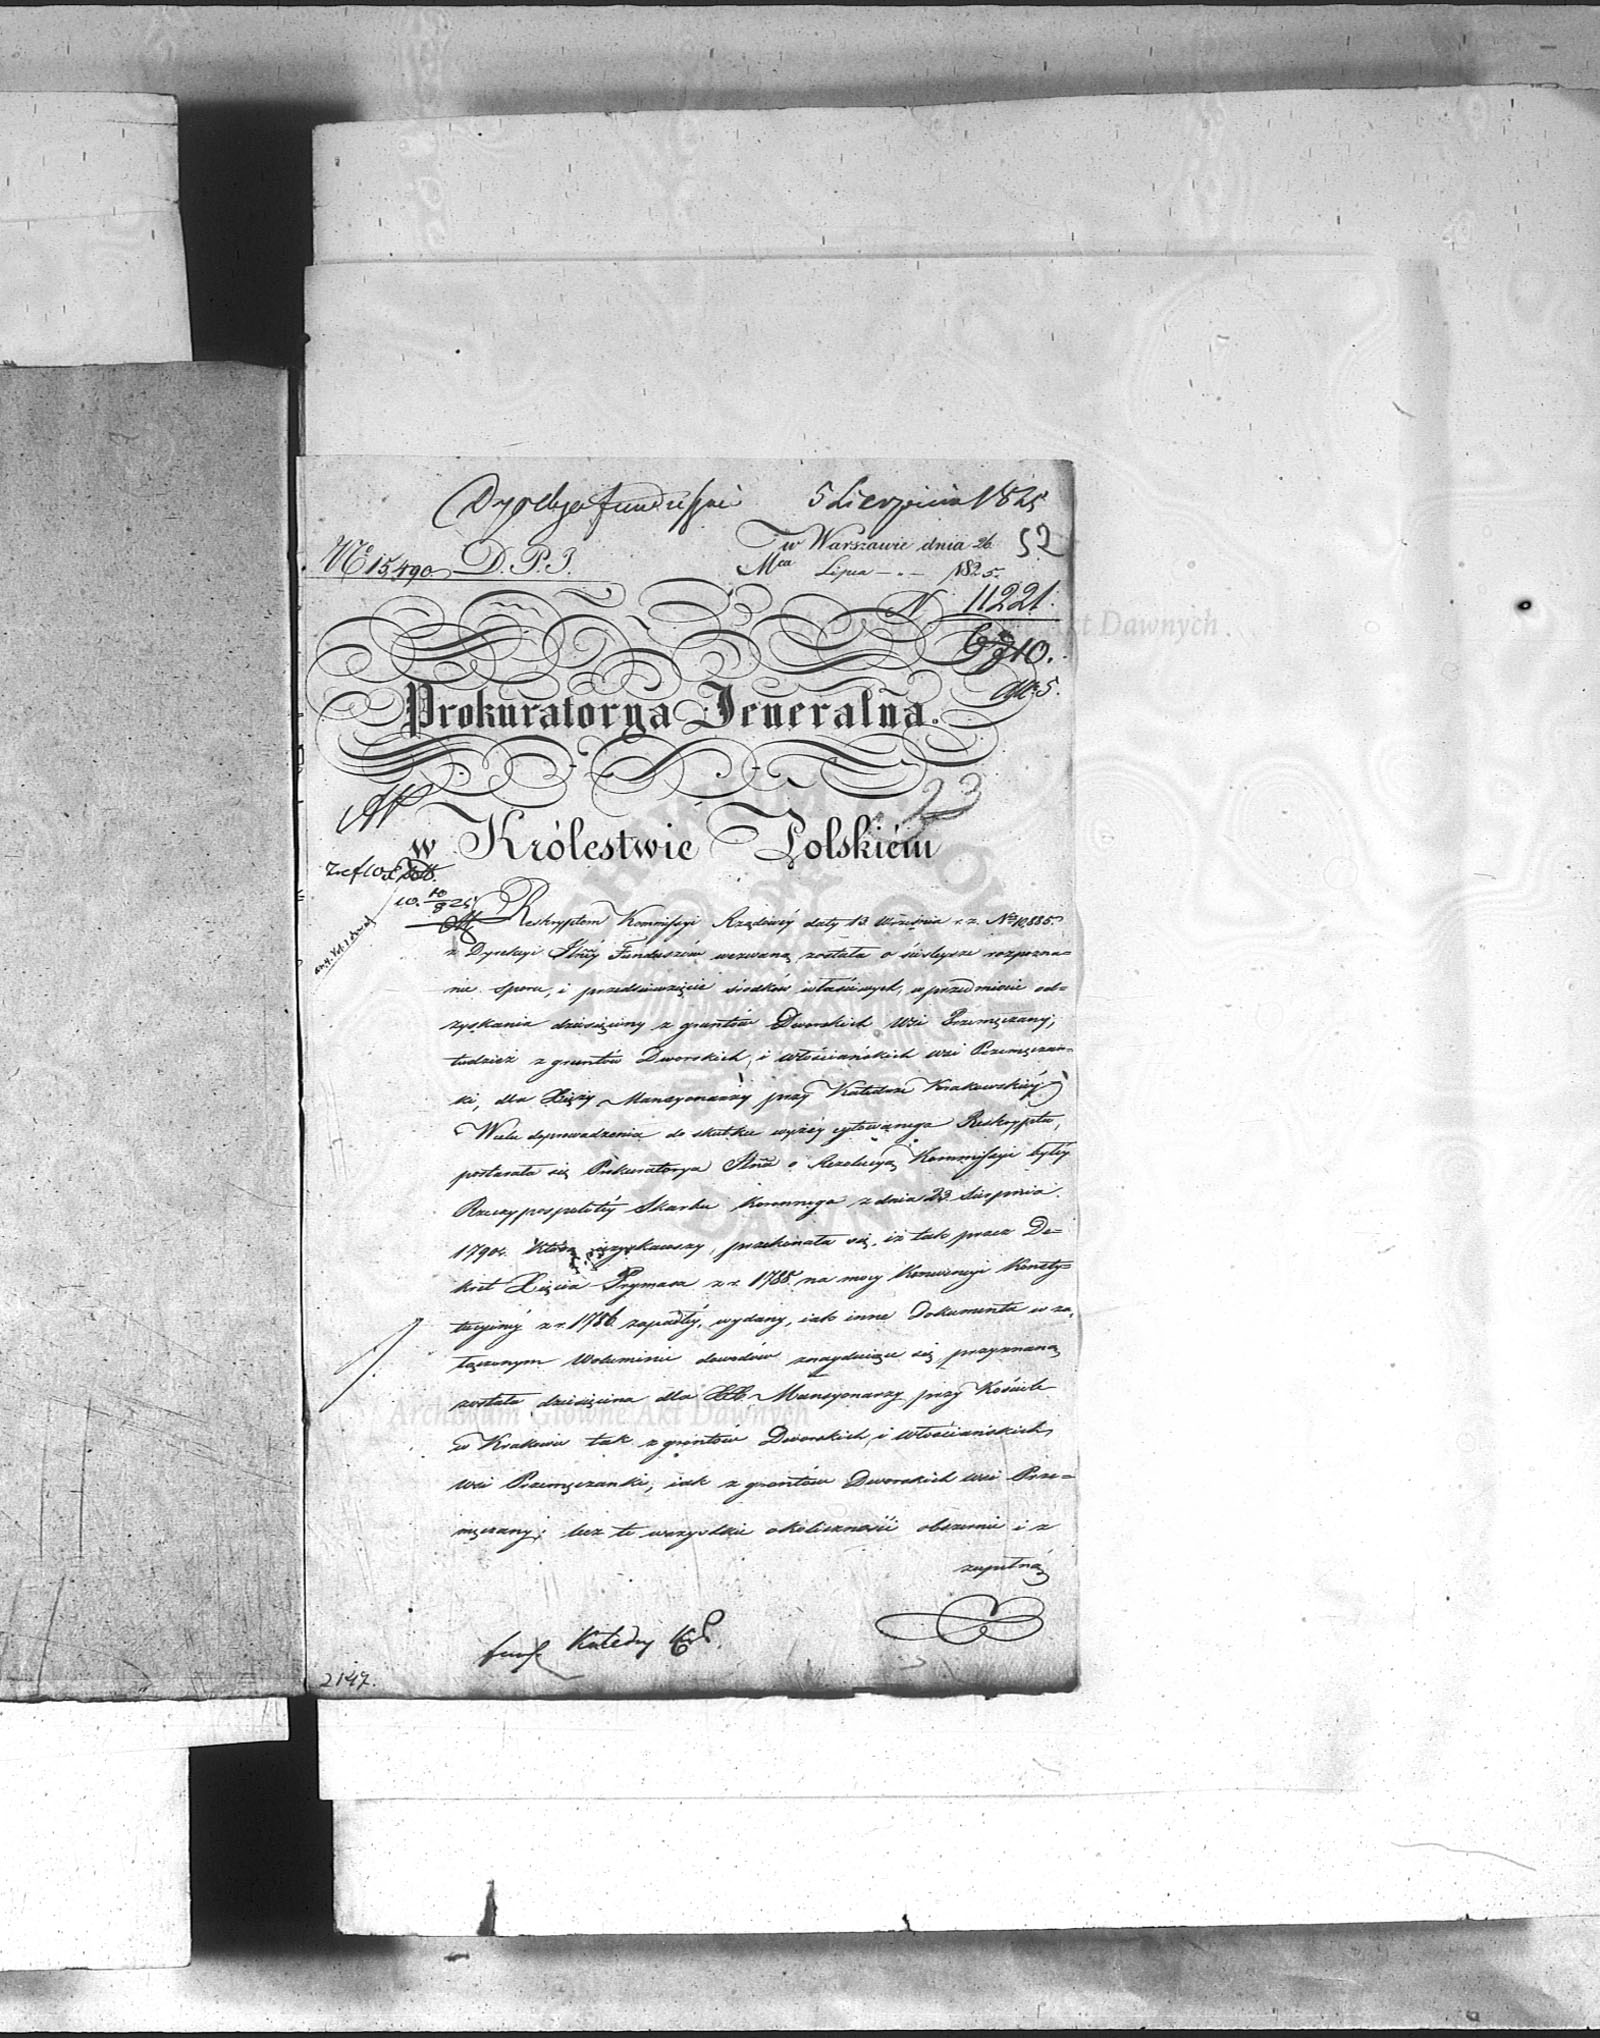 Dyrekcya Funduszów 5 Sierpnia 1825
w Warszawie dnia 26 52
Nº 15,490 D. P. J.
Mca Lipca 1825.
N 11221.
10.
5.
Prokuratorya Jeneralna.
23
w Królestwie Polskiém
10. 10/8 25
Reskryptem Kommissyi Rządowéy daty 13 Września r. z. Nº 10,885
z Dyrekcyi Funduszów wezwaną została o ściślejsze rozpozna=
nie sporu, i przedsięwzięcie środków właściwych, w przedmiocie od=
zyskania dziesięciny z gruntów Dworskich Wsi Przemęczany,
tudzież z gruntów Dworskich, i Włościańskich wsi Przemęczan=
ki, dla Xięży Mansyonarzy przy Katedrze Krakowskiéy
W celu doprowadzenia do skutku wyżéy cytowanego Reskryptu,
postarała się Prokuratorya o Rezolucyą Kommissyi byłéy
Rzeczypospolitéy Skarbu Koronnego z dnia 23 Sierpnia
1790 r. którą uzyskawszy, przekonała się, iż tak przez De=
kret Xięcia Prymasa z r. 1788 na mocy Konwencyi Konsty=
tucyinéy z r. 1786 zapadłéy, wydany, iak inne Dokumenta w za=
łączonym Woluminie dowodów znayduiące się, przyznaną
została dziesięcina dla XX. Mansyonarzy przy Kościele
w Krakowie tak z gruntów Dworskich, i Włościańskich
wsi Przemęczanki, iak z gruntów Dworskich wsi Prze=
męczany; lecz te wszystkie okoliczności obszernie i z
zupełną
Katedry
2147.
Archiwum Główne Akt Dawnych
Archiwum Główne Akt Dawnych